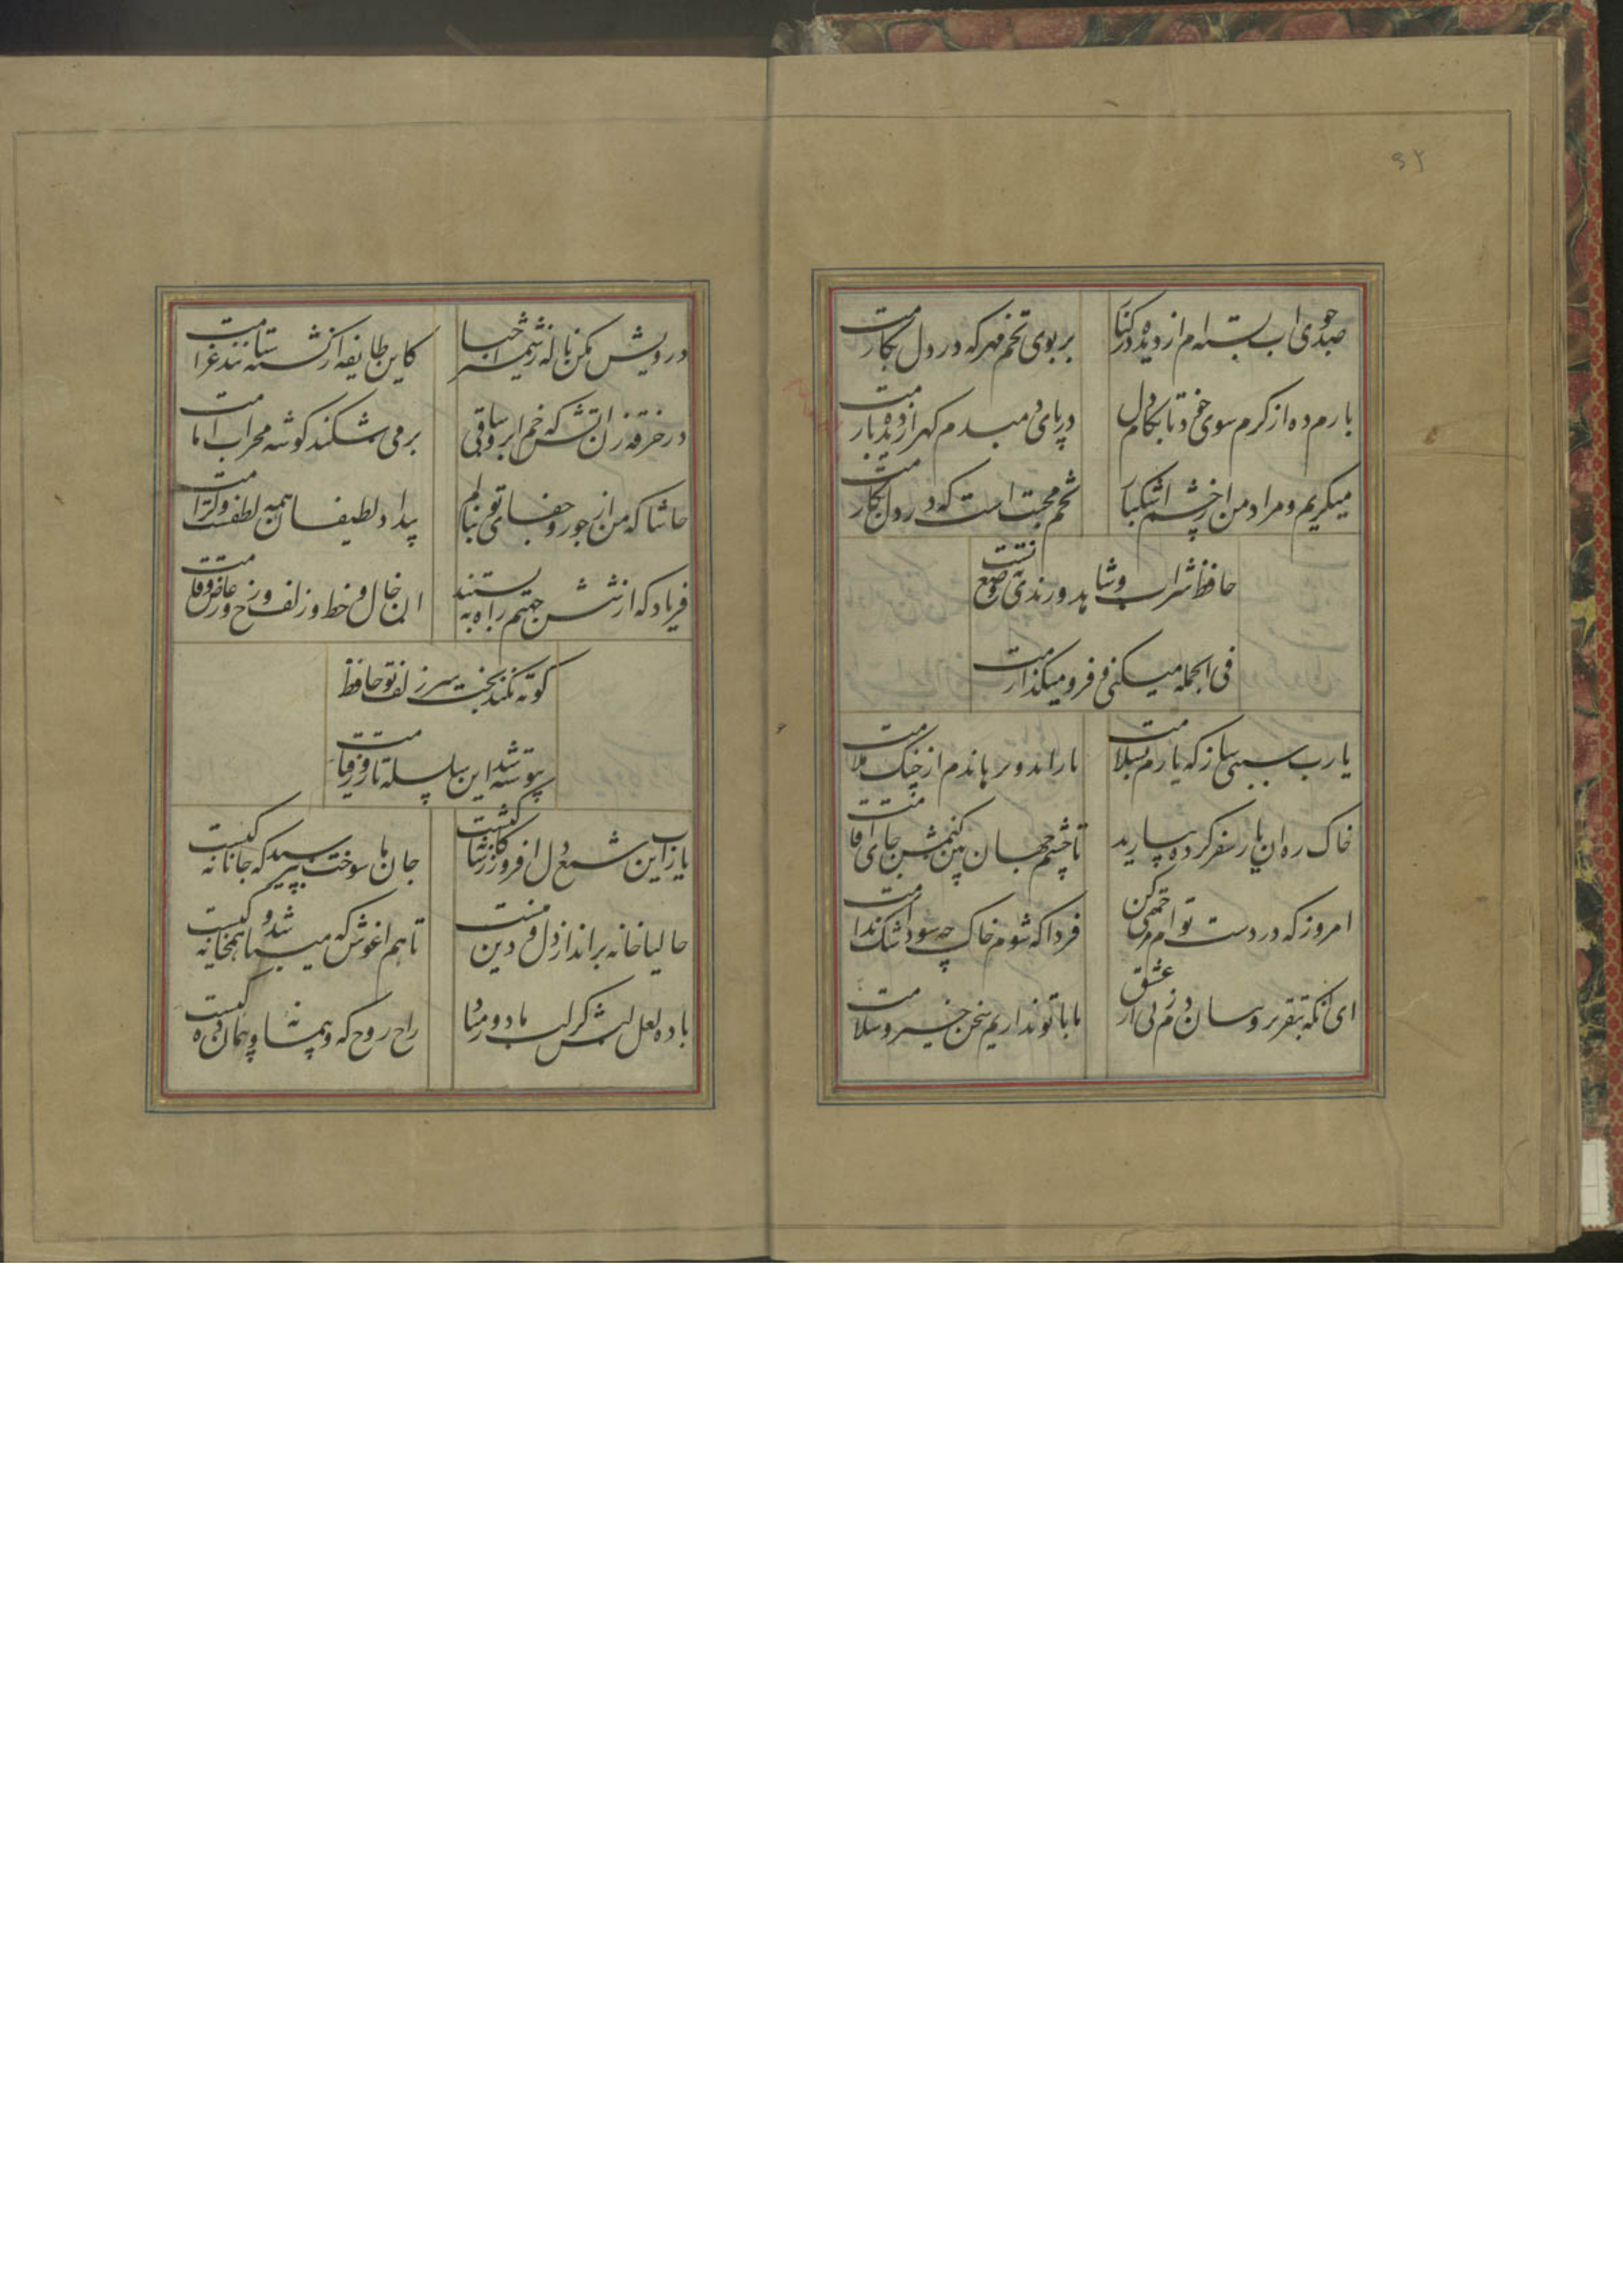 ۳۲
صد جوی اب بسته‌ام از دیده در کنار
بر بوی تخم مهر که در دل بکارمت
بارم ده از کرم سوی خود تا بکام دل
در پای دمبدم کهر از دیده بارمت
میکریم و مرادم از چشم اشکبار
تخم محبت است که در دل بکارمت
حافظ شراب و شاهد و رندی نه وضع تست
فی الجمله میکنی و فرو میکذارمت
یا رب سببی ساز که یارم بسلامت
باز اید و برهاندم از چنک ملامت
خاک ره ان یار سفر کرده بیارید
تا چشم جهان بین کنمش جای اقامت
امروز که در دست توام مرحمتی کن
فردا که شوم خاک چه سود اشک ندامت
ای انکه بتقریر و بیان دم زنی از عشق
ما با تو نداریم سخن خیر و سلامت
درویش مکن ناله ز شمشیر احبا
کاین طایفه از کشته ستانند غرامت
در خرقه زن اتش که خم ابروی ساقی
بر می شکند کوشه محراب امامت
حاشا که من از جور و جفای تو بنالم
بیداد لطیفان همه لطفست و کرامت
فریاد که از شش جهتم راه به بستند
ان خال و خط و زلف و رخ و عارض و قامت
کوته نکند بحث سر زلف تو حافظ
پیوسته شد این سلسله تا روز قیامت
یا رب این شمع دل افروز ز کاشانه کیست
جان ما سوخت بپرسید که جانانه کیست
حالیا خانه برانداز دل و دین منست
تا هم اغوش که میباشد و همخانه کیست
باده لعل لبش کز لب ما دور مباد
راح روح که و پیمان ده پیمانه کیست